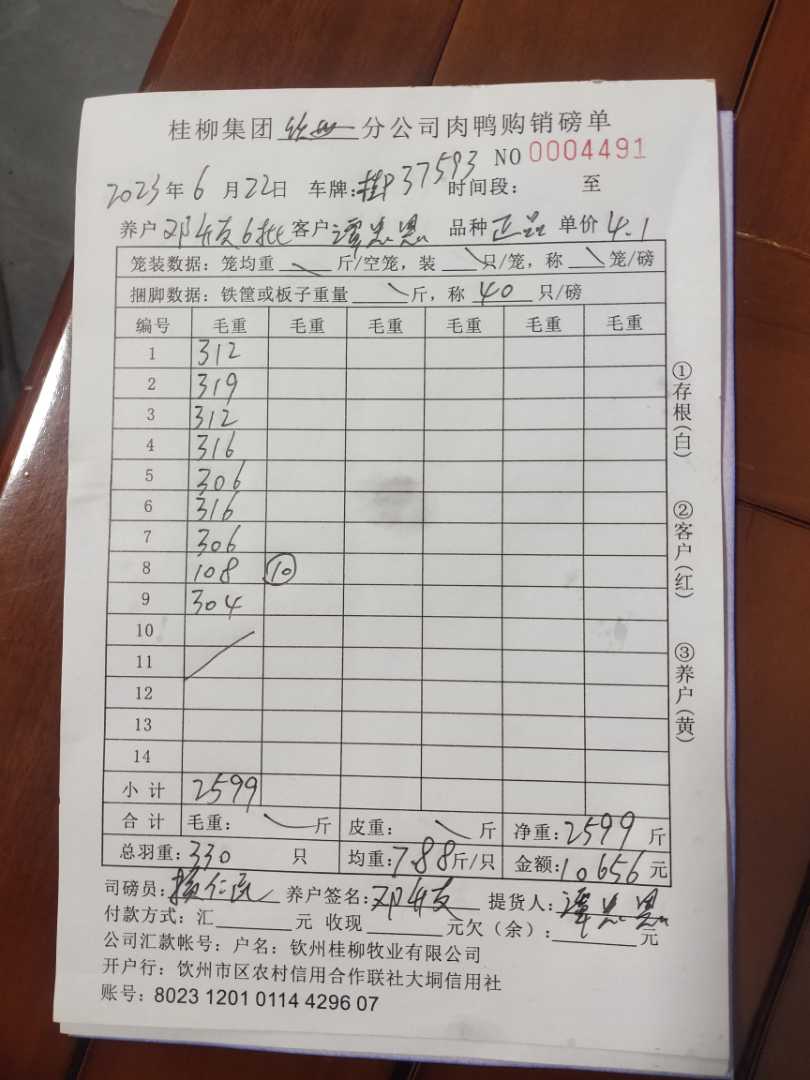 桂柳集团钦州分公司肉鸭购销磅单
NO 0004491
2023年6月22日 车牌:桂P37593 时间段: 至
养户 邓 6批 客户 谭忠恩 品种 正品 单价 4.1
笼装数据: 笼均重 斤/空笼, 装 只/笼, 称 笼/磅
捆脚数据: 铁筐或板子重量 斤, 称 40 只/磅
编号 毛重 毛重 毛重 毛重 毛重 毛重
1 312
2 319
3 312
4 316
5 306
6 316
7 306
8 108 ⑩
9 304
10
11
12
13
14
小计 2599
合计 毛重: 斤 皮重: 斤 净重:2599斤
总羽重:330 只 均重:7.88斤/只 金额:10656元
司磅员: 养户签名:邓 提货人:谭忠恩
付款方式:汇 元 收现 元欠(余): 元
公司汇款帐号: 户名: 钦州桂柳牧业有限公司
开户行: 饮州市区农村信用合作联社大垌信用社
账号: 8023 1201 0114 4296 07
①存根(白)
②客户(红)
③养户(黄)